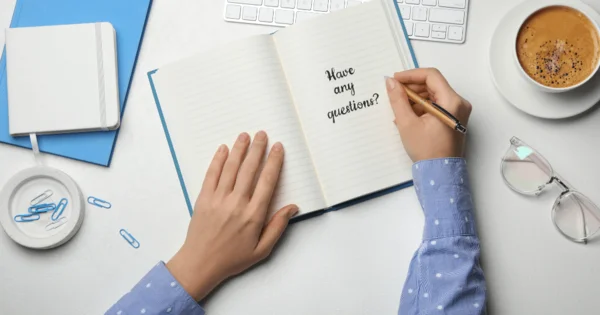 Have
any
questions?